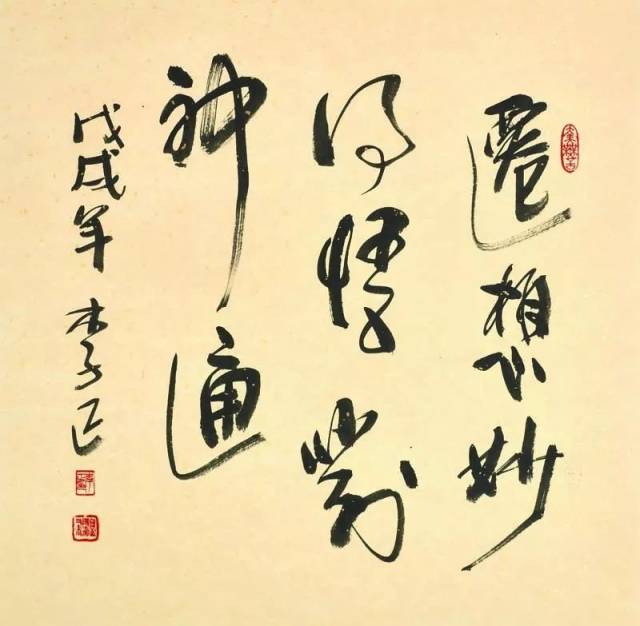 遷想妙
得悟對
神通
戊戌年 李